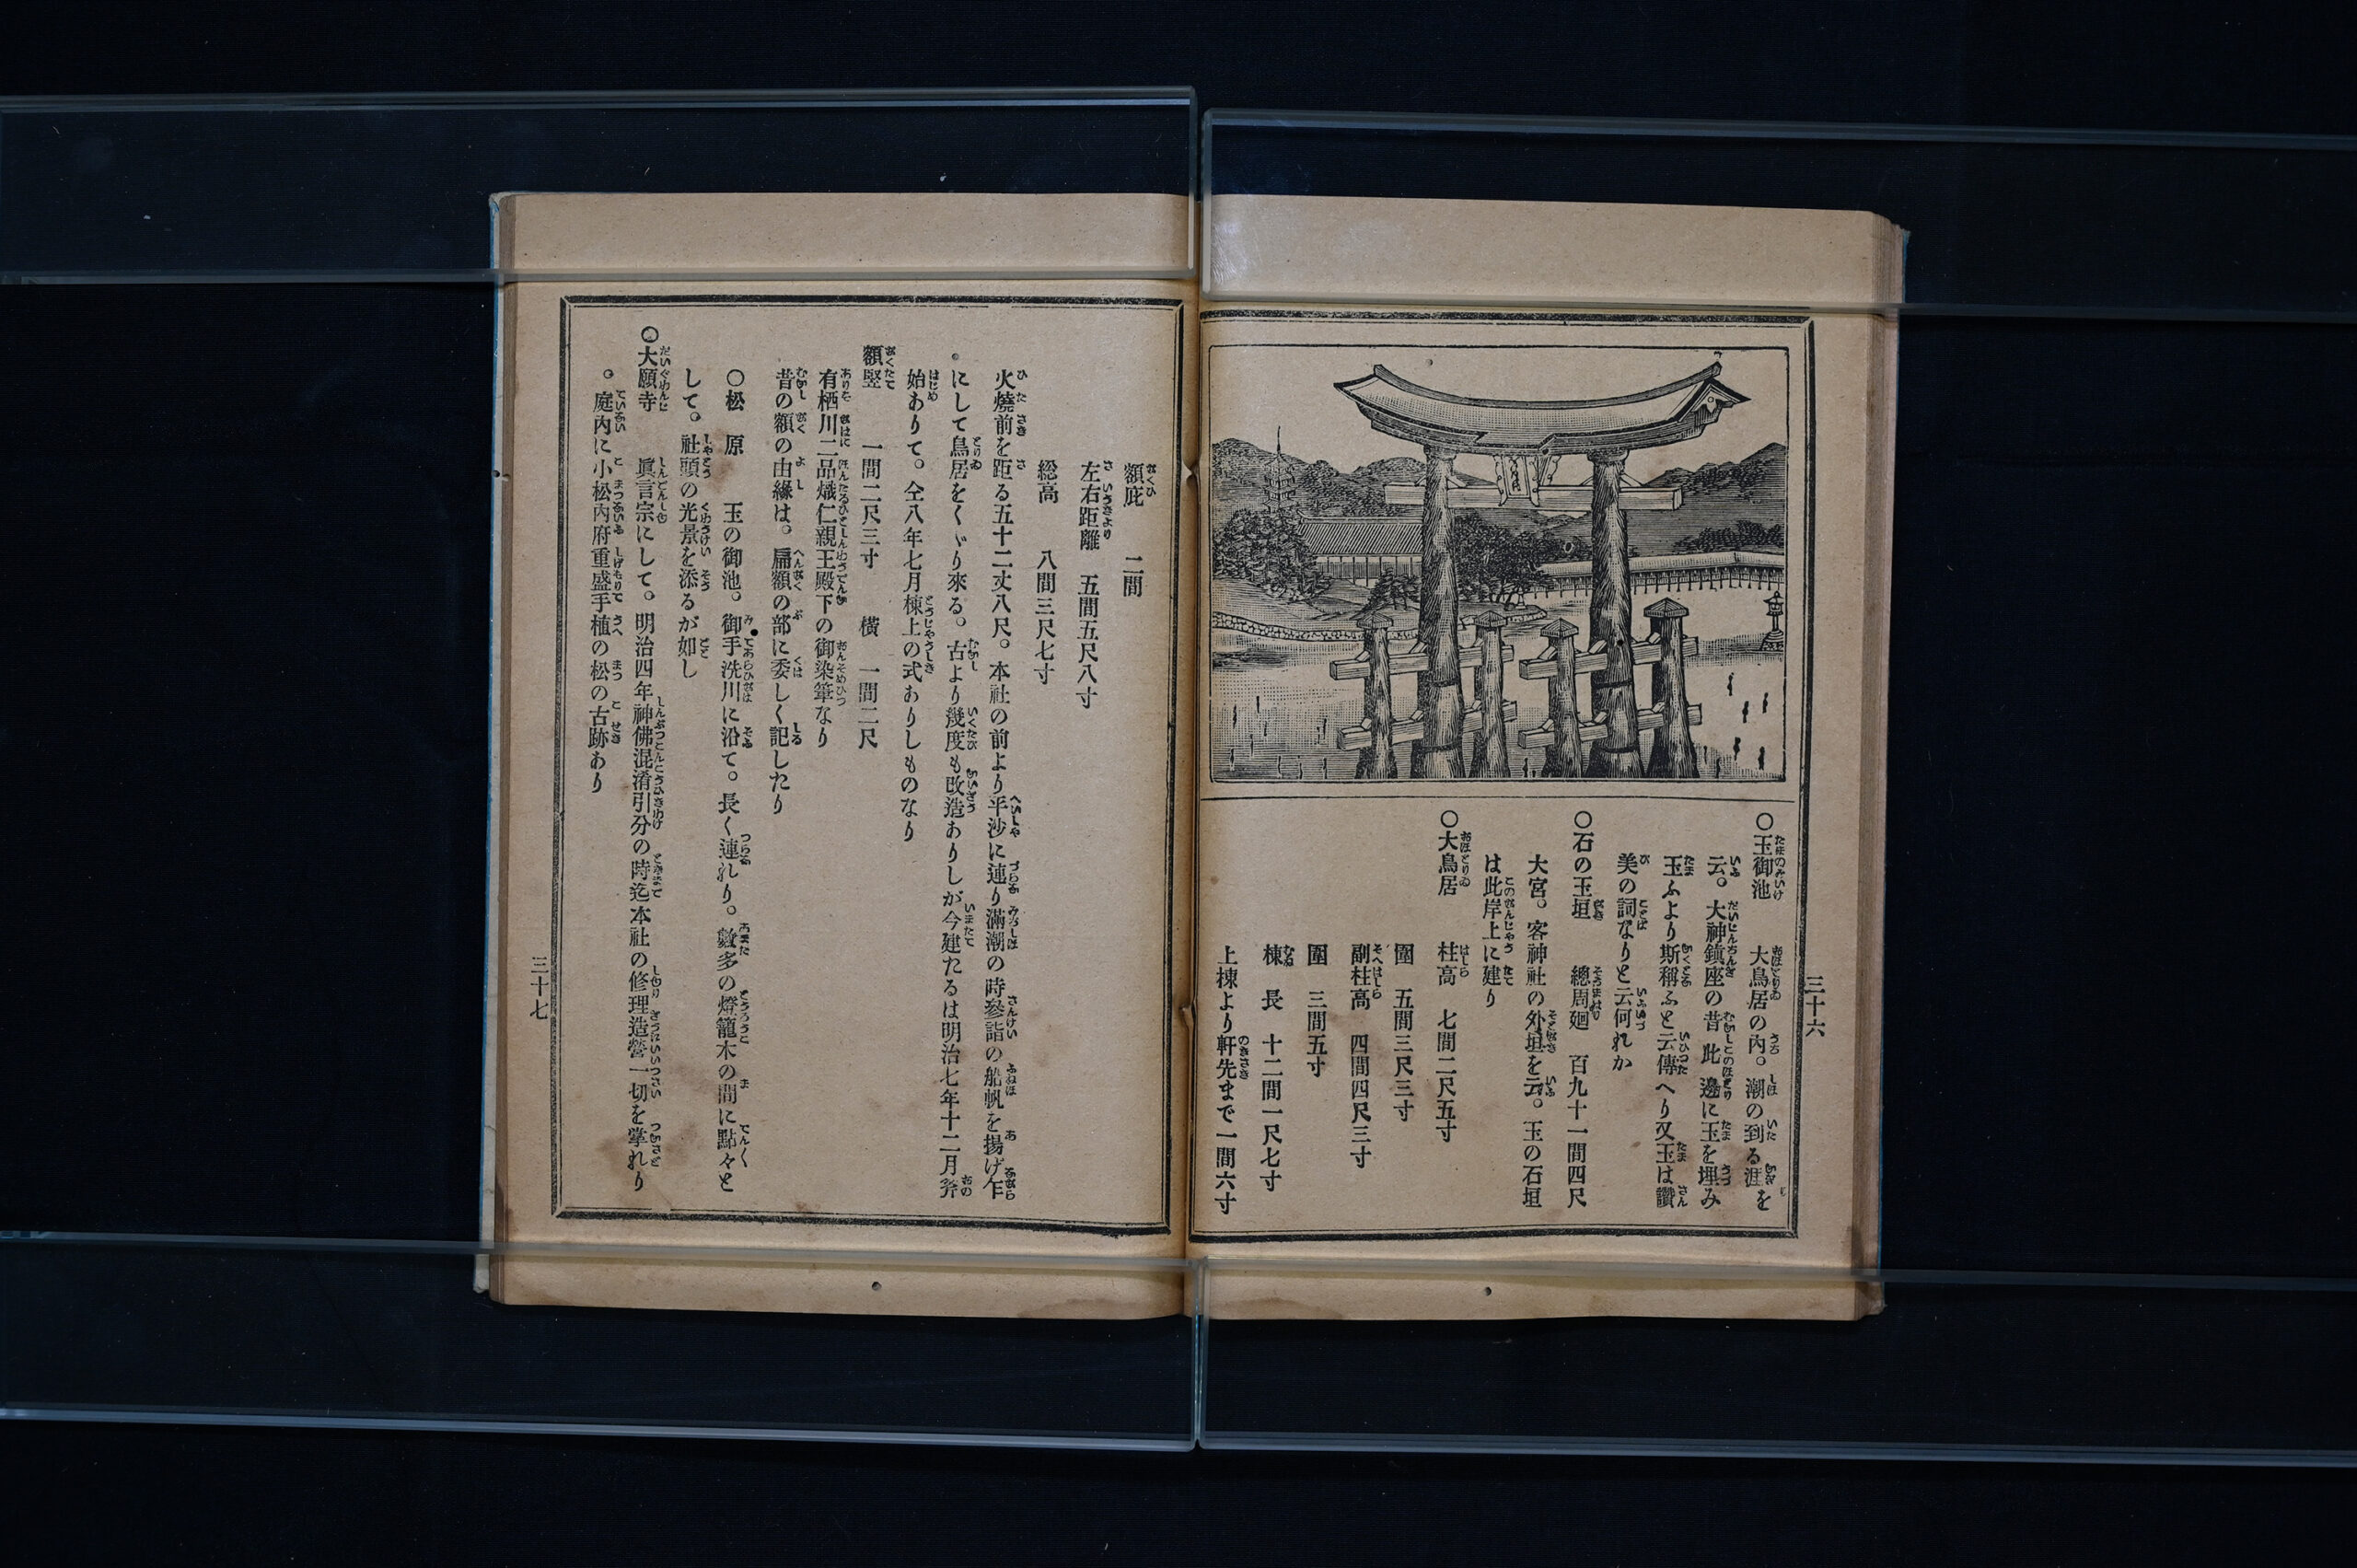 三十六
○玉御池　大鳥居の内。潮の到る涯を
云。大神鎭座の昔此邊に玉を埋み
玉ふより斯稱ふと云傳へり又玉は讚
美の詞なりと云何れか
○石の玉垣　總周廻　百九十一間四尺
大宮。客神社の外垣を云。玉の石垣
は此岸上に建り
○大鳥居　柱高　七間二尺五寸
圍　五間三尺三寸
副柱高　四間四尺三寸
圍　三間五寸
棟　長　十二間一尺七寸
上棟より軒先まで一間六寸
額庇　二間
左右距離　五間五尺八寸
総高　八間三尺七寸
火燒前を距る五十二丈八尺。本社の前より平沙に連り滿潮の時參詣の船帆を揚げ乍
にして鳥居をくゞり來る。古より幾度も改造ありしが今建たるは明治七年十二月斧
始ありて。仝八年七月棟上の式ありしものなり
額竪　一間二尺三寸　橫　一間二尺
有栖川二品熾仁親王殿下の御染筆なり
昔の額の由緣は。扁額の部に委しく記したり
○松原　玉の御池。御手洗川に沿て。長く連れり。數多の燈籠木の間に點々と
して。社頭の光景を添るが如し
○大願寺　眞言宗にして。明治四年神佛混淆引分の時迄本社の修理造營一切を掌れり
。庭內に小松內府重盛手植の松の古跡あり
三十七